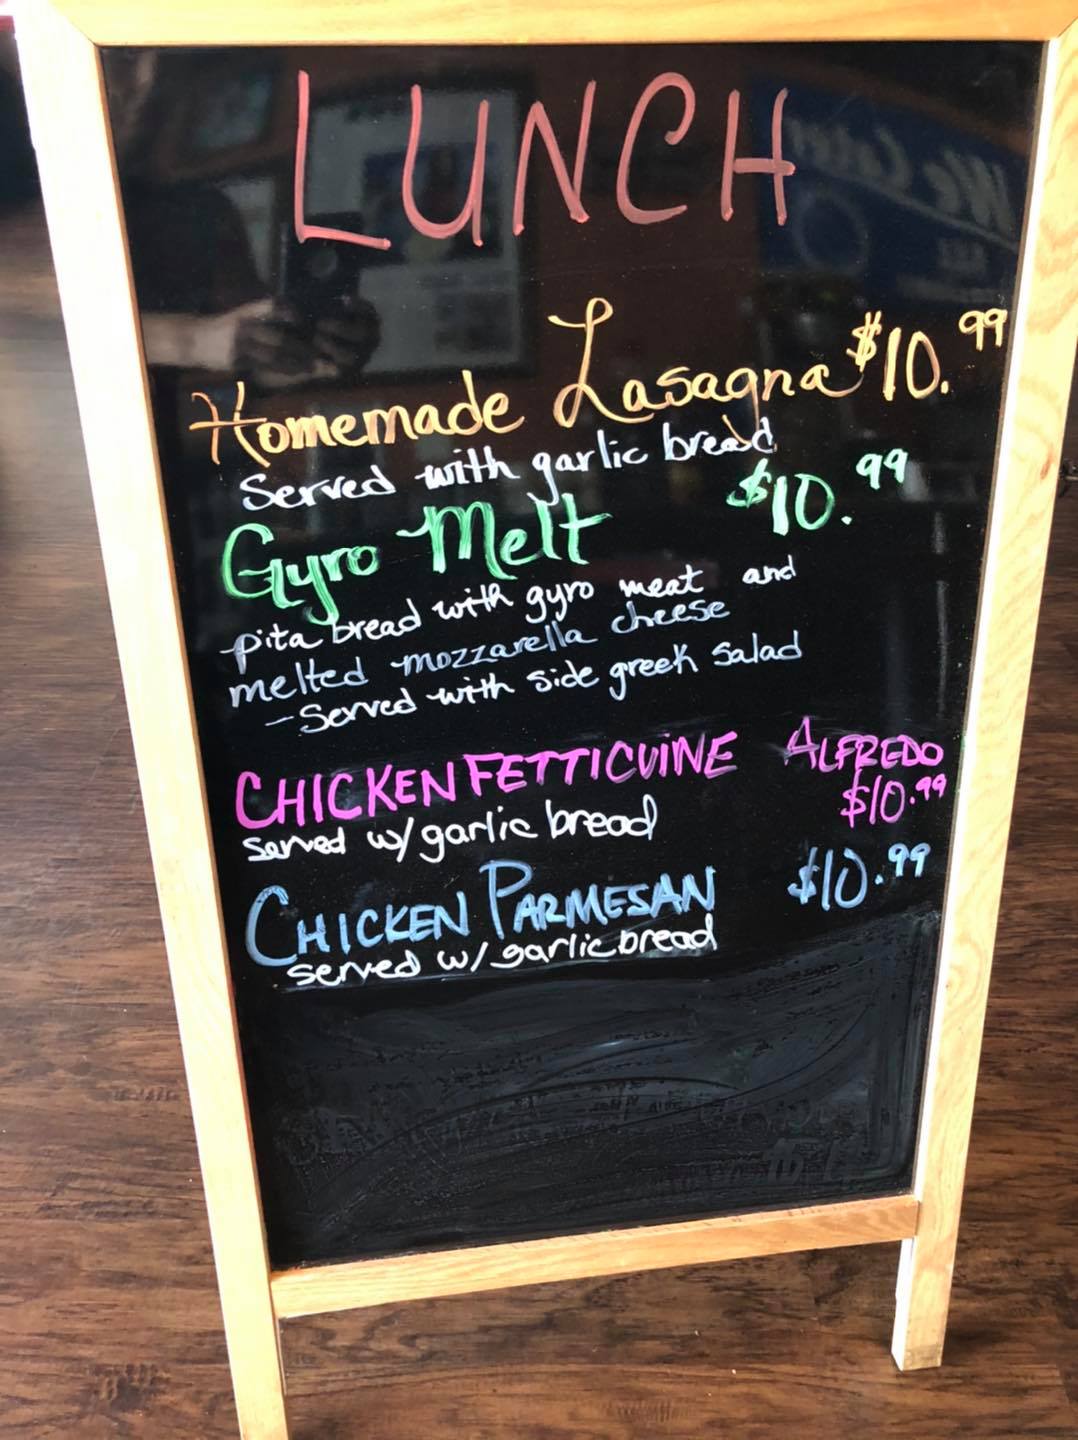 LUNCH
Homemade Lasagna $10.99
Served with garlic bread
Gyro Melt $10.99
pita bread with gyro meat and
melted mozzarella cheese
- Served with side greek salad
CHICKEN FETTICUINE ALFREDO
$10.99
served w/ garlic bread
CHICKEN PARMESAN $10.99
served w/ garlic bread